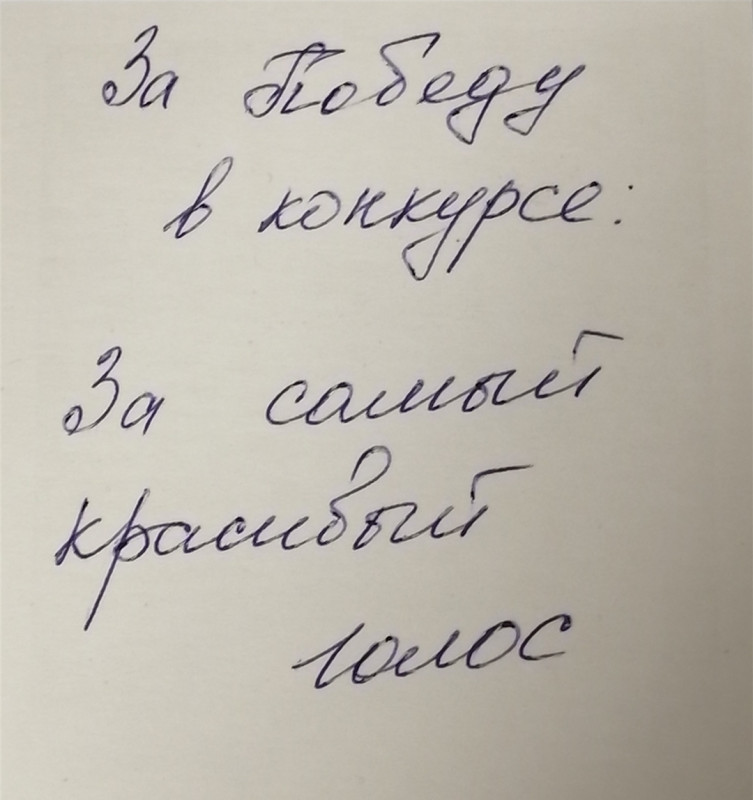 За Победу
в конкурсе:
За самый
красивый
голос